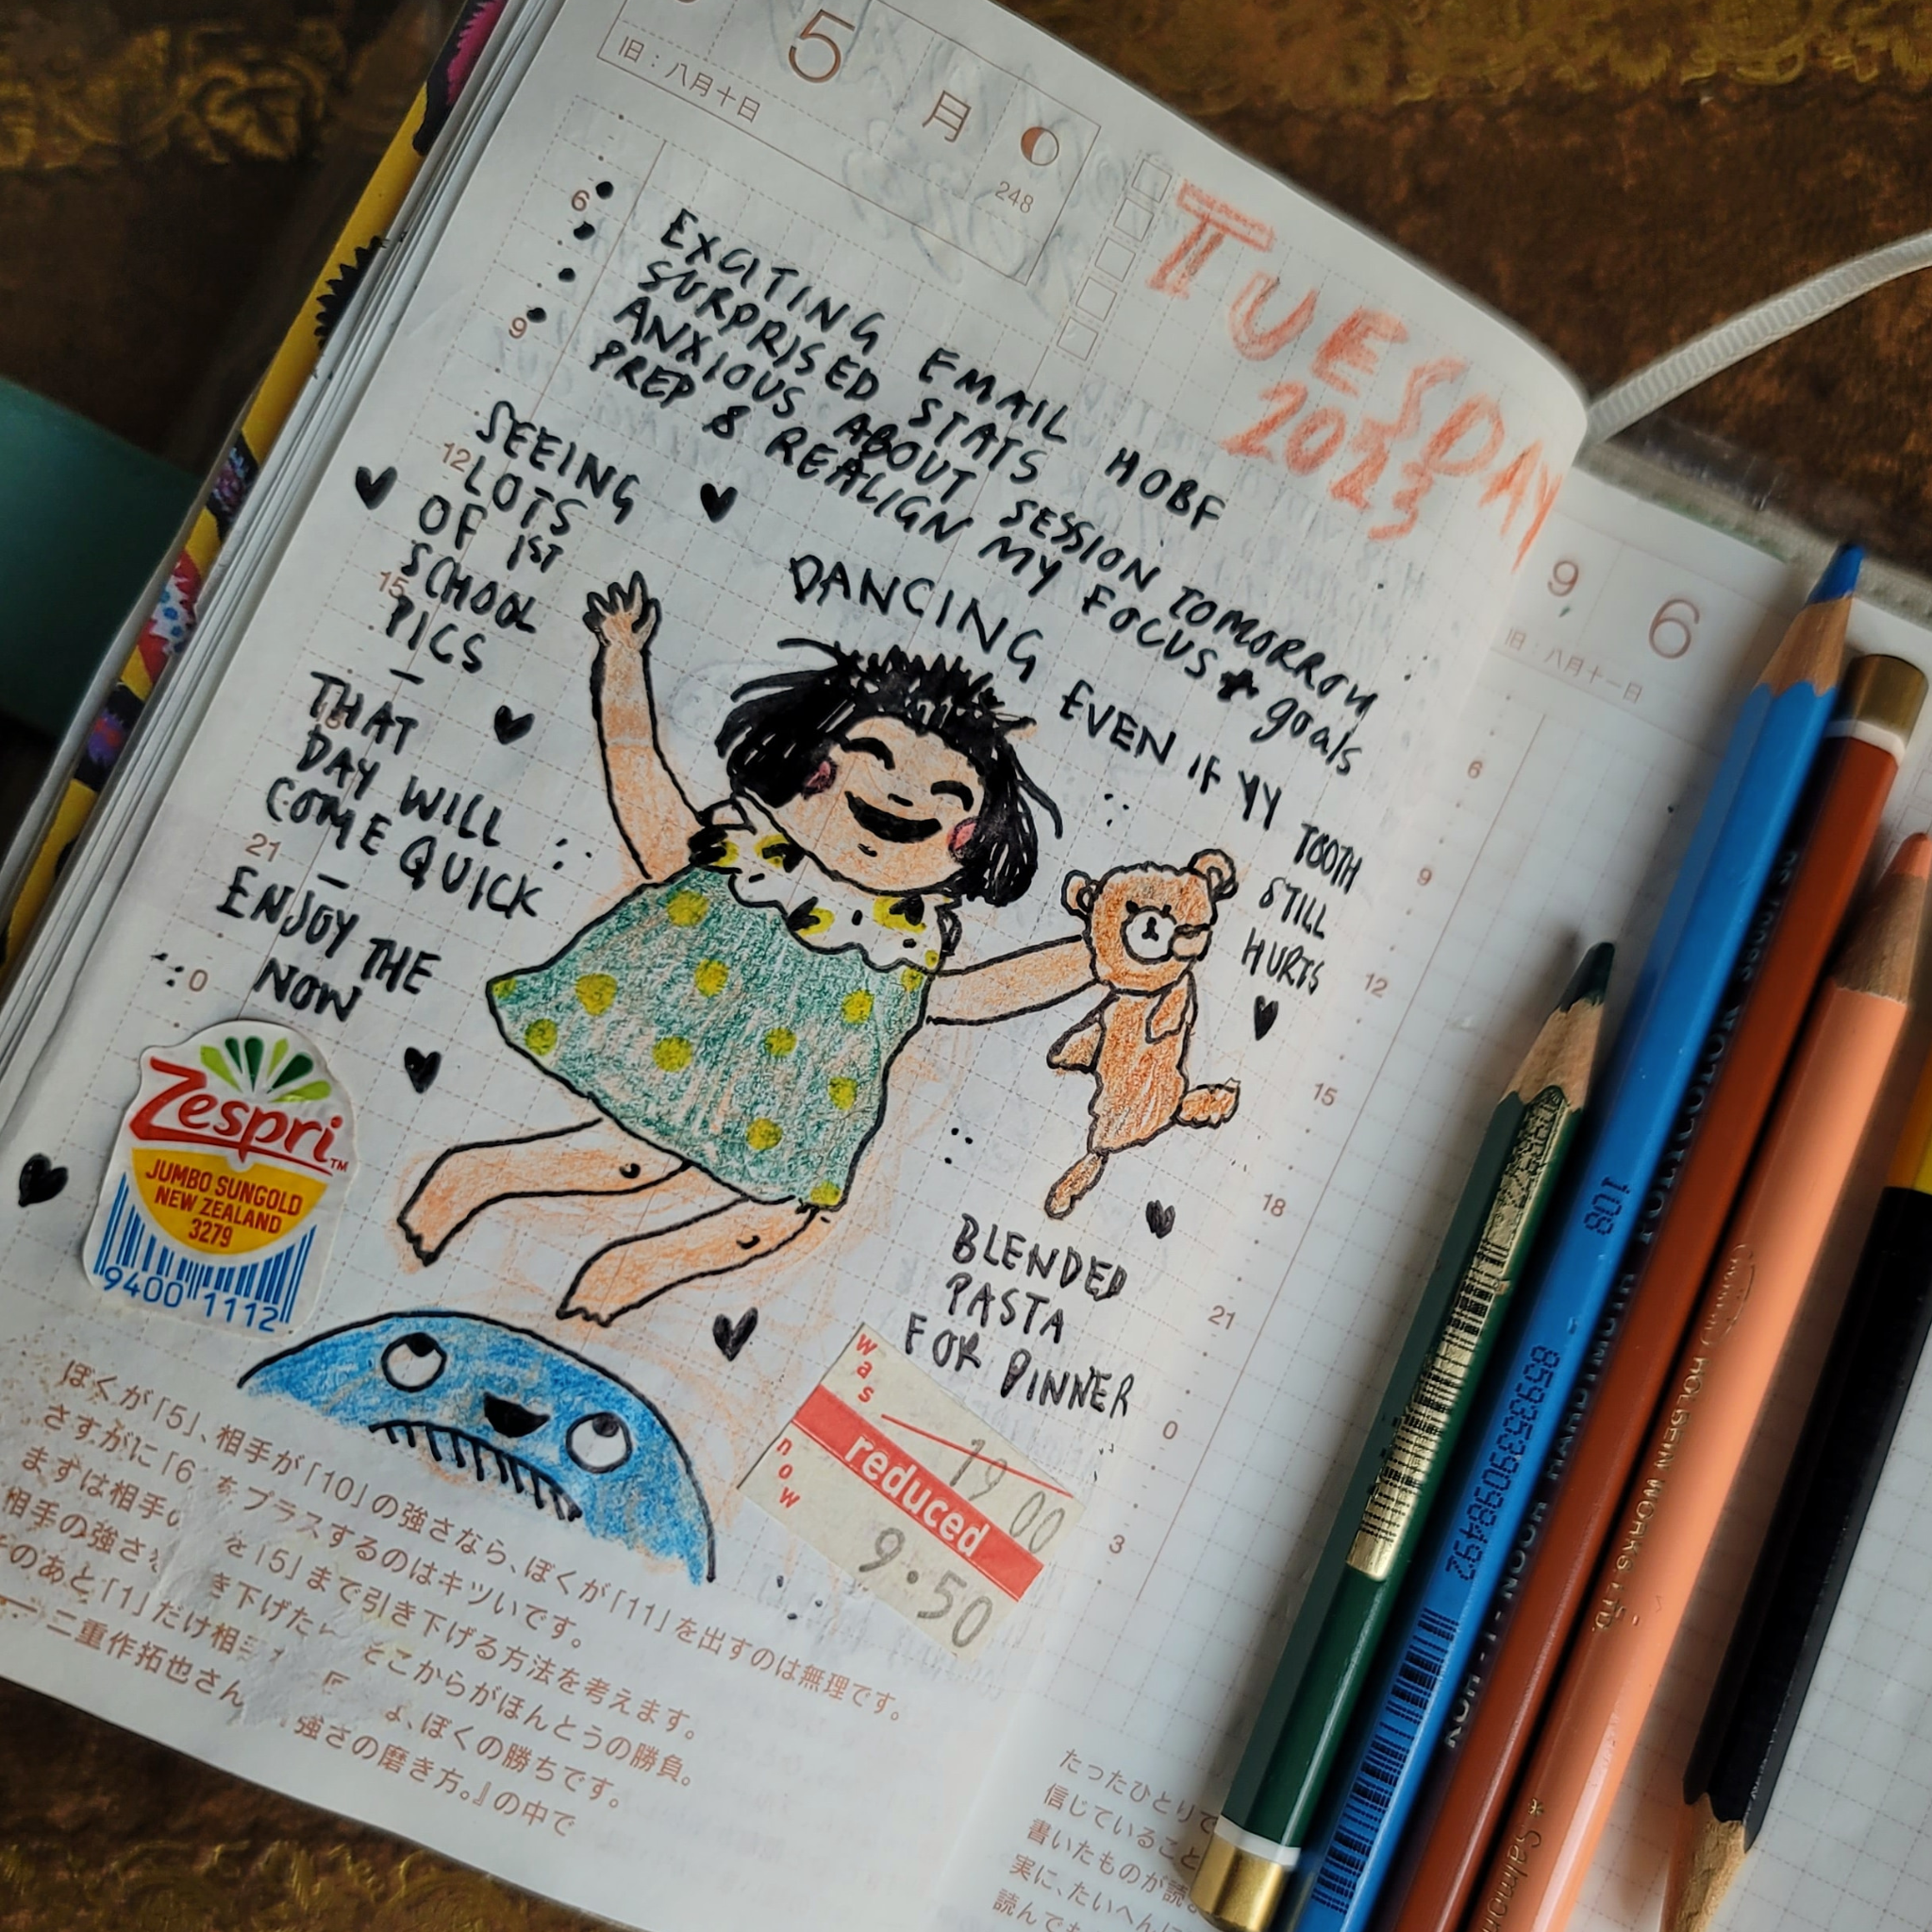 5
月
旧：八月十日
248
TUESDAY
2023
6
9
12
15
21
0
EXCITING EMAIL HOBF
SURPRISED STATS
ANXIOUS ABOUT SESSION TOMORROW
PREP & REALIGN MY FOCUS + goals
SEEING
LOTS
OF 1ST
SCHOOL
PICS
–
THAT
DAY WILL
COME QUICK
–
ENJOY THE
NOW
DANCING EVEN IF YY TOOTH
STILL
HURTS
Zespri™
JUMBO SUNGOLD
NEW ZEALAND
3279
9400 1112
BLENDED
PASTA
FOR DINNER
was
19 00
reduced
now
9.50
ぼくが「5」、相手が「10」の強さなら、ぼくが「11」を出すのは無理です。
さすがに「6 をプラスするのはキツいです。
まずは相手の を「5」まで引き下げる方法を考えます。
相手の強さを き下げた そこからがほんとうの勝負。
そのあと「1」だけ相手 ば、ぼくの勝ちです。
── 二重作拓也さん 『強さの磨き方。』の中で
9 6
旧：八月十一日
6
9
12
15
18
21
0
3
たったひとりで
信じていること
書いたものが読
実に、たいへんに
読んでも
108
8593539098492
KOH-I-NOOR HARDTMUTH POLYCOLOR
HOLBEIN WORKS, LTD.
* Salmon